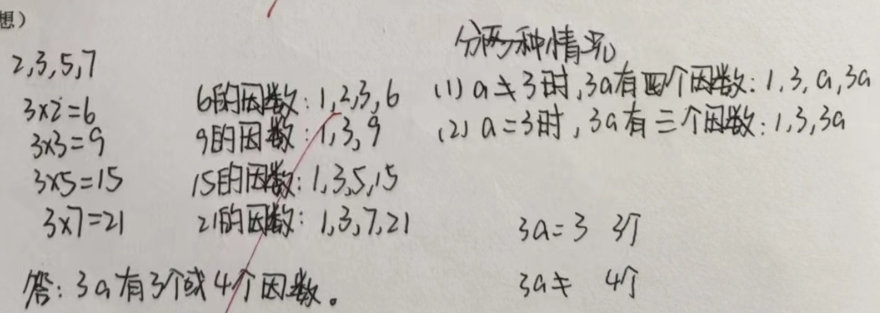 想）
2,3,5,7
3×2=6
3×3=9
3×5=15
3×7=21
6的因数：1,2,3,6
9的因数：1,3,9
15的因数：1,3,5,15
21的因数：1,3,7,21
答：3a有3个或4个因数。
分两种情况
(1) a≠3时,3a有四个因数：1,3,a,3a
(2) a=3时,3a有三个因数：1,3,3a
3a=3 3个
3a≠ 4个